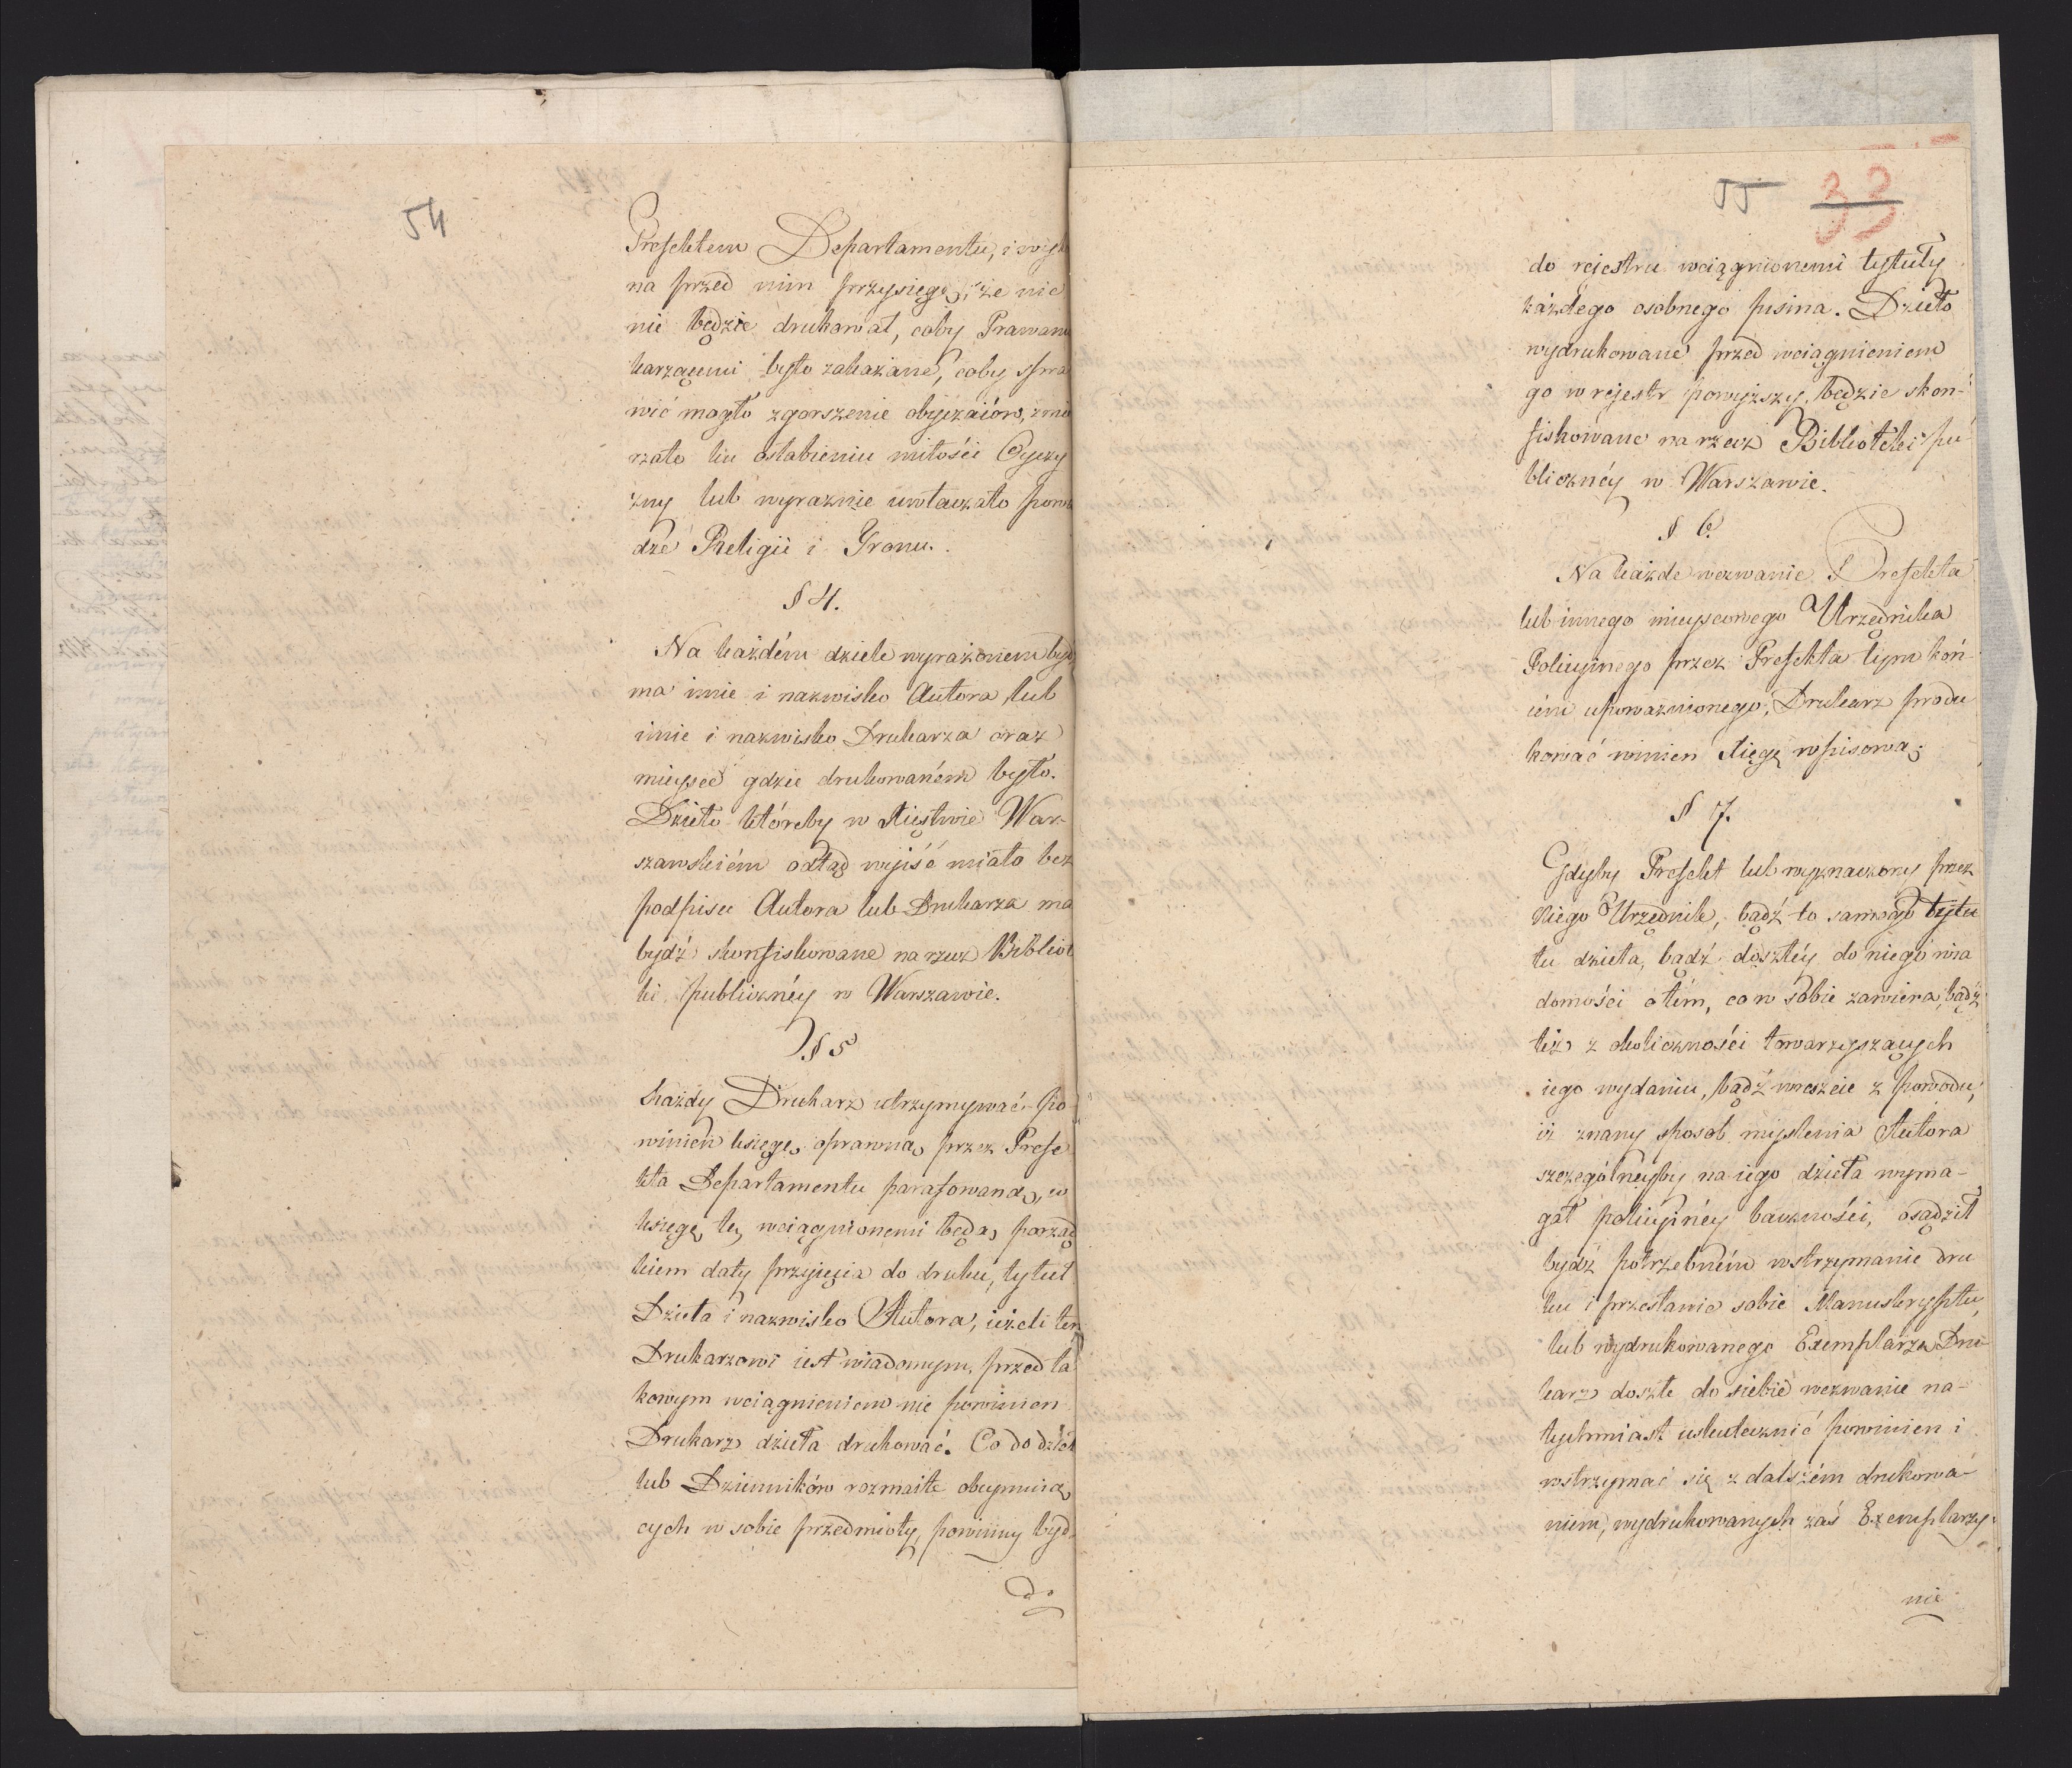 54
Prefektem Departamentu, i wyk
na przed nim przysięgę, że nic
nie będzie drukował, coby Prawami
karzącemi było zakazane, coby spra
wić mogło zgorszenie obyczaiów, zmie
rzało ku osłabieniu miłości Oyczy
zny lub wyraźnie uwłaczało powa
dze Religii i Tronu.
§ 4.
Na każdém dziele wyrażonem bydź
ma imie i nazwisko Autora, lub
imie i nazwisko Drukarza oraz
mieysce gdzie drukowaném było.
Dzieło któreby w Xięstwie War-
szawskiém odtąd wyiść miało bez
podpisu Autora lub Drukarza ma
bydź skonfiskowane na rzecz Bibliot
ki publicznéy w Warszawie.
§ 5
Każdy Drukarz utrzymywać po
winien księgę oprawną przez Prefe
kta Departamentu parafowaną, w
księgę tę wciągnionemi będą porząd
kiem daty przyięcia do druku, tytuł
Dzieła i nazwisko Autora, ieżeli ten
Drukarzowi iest wiadomym, przed ta
kowym wciągnieniem nie powinien
Drukarz dzieła drukować. Co do dzieł
lub Dzienników rozmaite obeymuią
cych w sobie przedmioty, powinny bydź
do
55 33
do rejestru wciągnionemi tytuły
każdego osobnego pisma. Dzieło
wydrukowane przed wciągnieniem
go w rejestr powyższy, będzie skon-
fiskowane na rzecz Biblioteki pu-
blicznéy w Warszawie.
§ 6.
Na każde wezwanie Prefekta
lub innego mieyscowego Urzędnika
Policyinego przez Prefekta tym koń-
cem upoważnionego, Drukarz produ
kować winien Xięgę wpisową.
§ 7.
Gdyby Prefekt lub wyznaczony przez
Niego Urzędnik, bądź to samego tytu
łu dzieła, bądź doszłéy do niego wia
domości o tém, co w sobie zawiera, bądź
téż z okoliczności towarzyszących
iego wydaniu, bądź wreszcie z powodu,
iż znany sposob myślenia Autora
szczególnéyby na iego dzieła wyma-
gał policyinéy baczności, osądził
bydź potrzebném wstrzymanie dru
ku i przesłanie sobie Manuskryptu,
lub wydrukowanego Exemplarza, Dru-
karz doszłe do siebie wezwanie na-
tychmiast uskutecznić powinien i
wstrzymać się z dalszém drukowa-
niem, wydrukowanych zaś Exemplarzy
nie